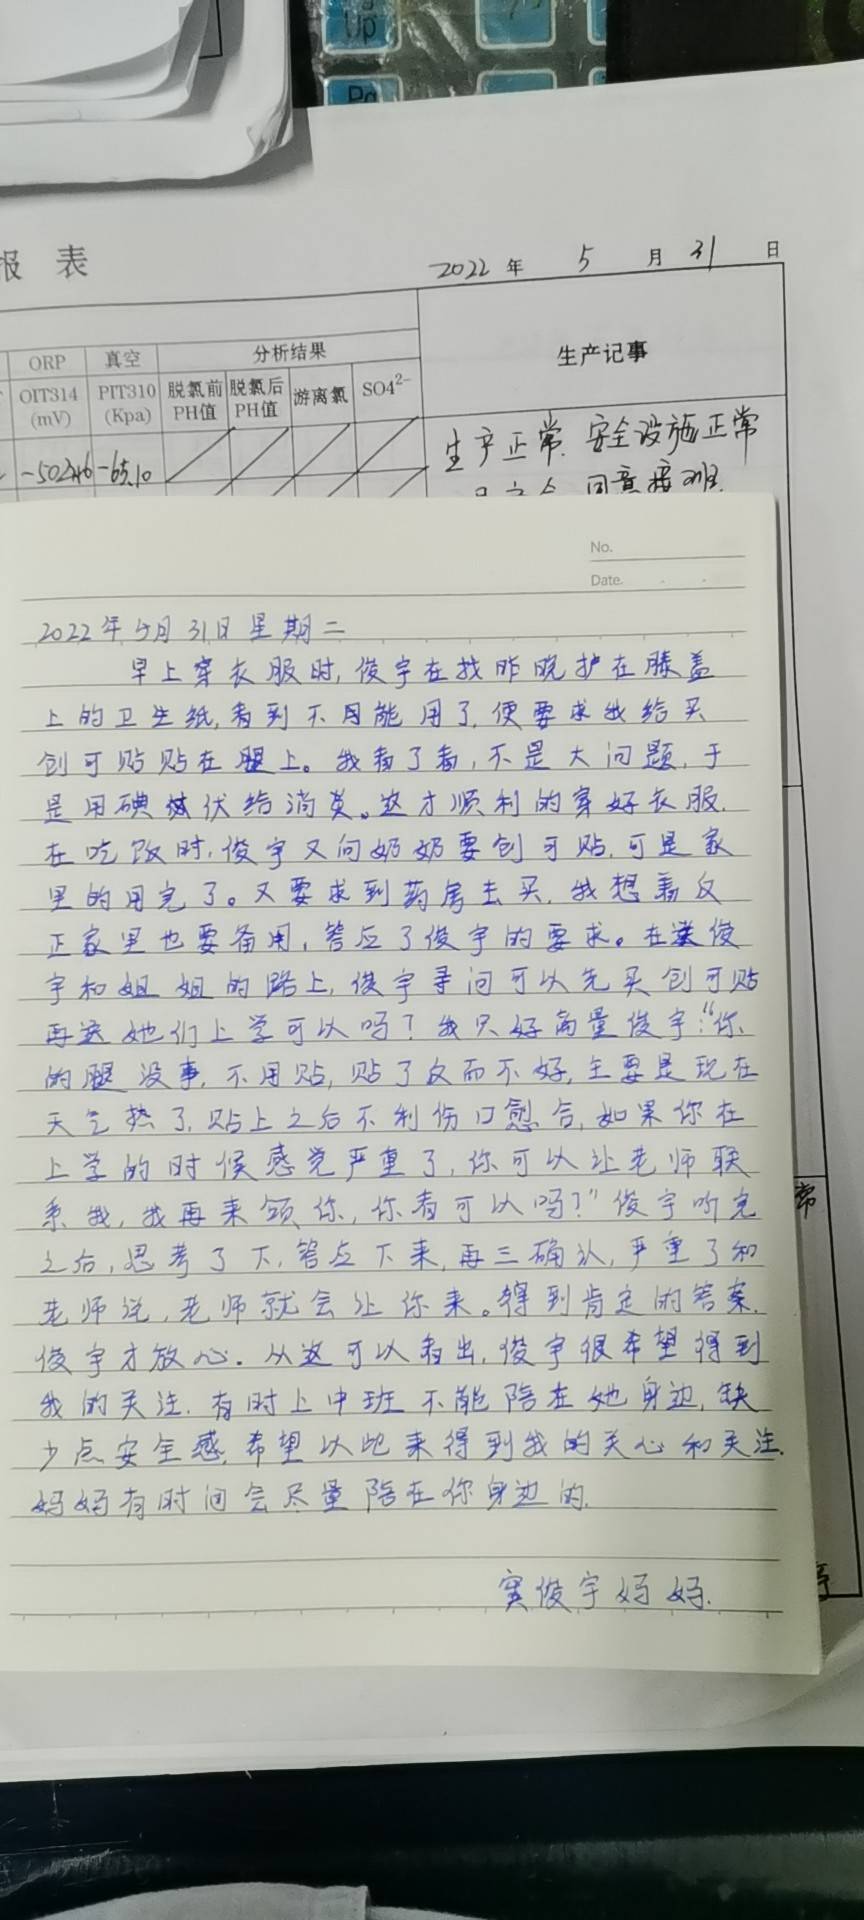 Up
报 表
2022 年 5 月 31 日
ORP 真空 分析结果 生产记事
OIT314 (mV) PIT310 (Kpa) 脱氯前 PH值 脱氯后 PH值 游离氯 SO4²⁻
-65.10
生产正常.安全设施正常
同意接班.
No.
Date.
2022年5月31日星期二
早上穿衣服时,俊宇在找昨晚护在膝盖
上的卫生纸,看到不能用了,便要求我给买
创可贴贴在腿上。我看了看,不是大问题,于
是用碘伏给消炎。这才顺利的穿好衣服.
在吃饭时,俊宇又问奶奶要创可贴,可是家
里的用完了。又要求到药房去买,我想着反
正家里也要备用,答应了俊宇的要求。在送俊
宇和姐姐的路上,俊宇寻问可以先买创可贴
再送她们上学可以吗?我只好商量俊宇:“你
的腿没事,不用贴,贴了反而不好,主要是现在
天气热了,贴上之后不利伤口愈合,如果你在
上学的时候感觉严重了,你可以让老师联
系我,我再来领你,你看可以吗?”俊宇听完
之后,思考了下,答应下来,再三确认,严重了和
老师说,老师就会让你来。得到肯定的答案,
俊宇才放心。从这可以看出,俊宇很希望得到
我的关注.有时上中班不能陪在她身边,缺
少点安全感,希望以此来得到我的关心和关注.
妈妈有时间会尽量陪在你身边的.
窦俊宇妈妈.
常